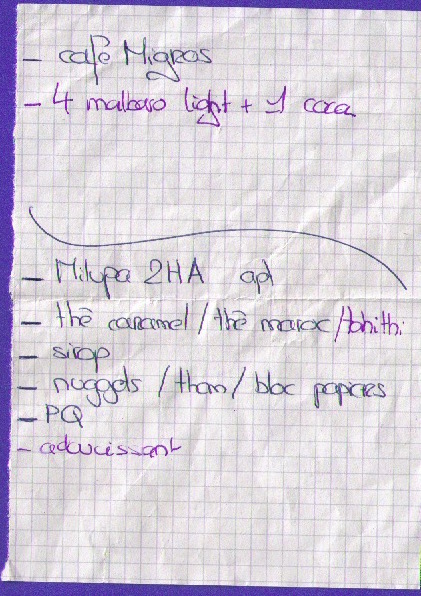 - café Migros
- 4 malboro light + 1 coca
- Milupa 2HA
- thé caramel / thé maroc /
- sirop
- nuggets / thon / bloc
- PQ
- adoucissant